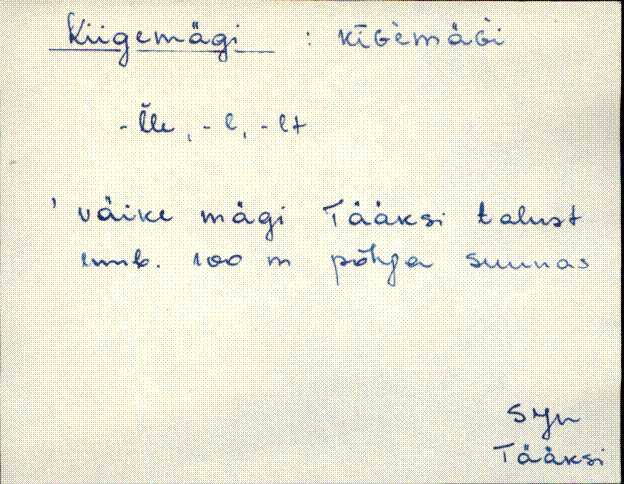 Kiigemägi : kīGèmäGì
-l̆le, -l, -lt
' väike mägi Tääksi talust
umb. 100 m põhja suunas
SJn
Tääksi